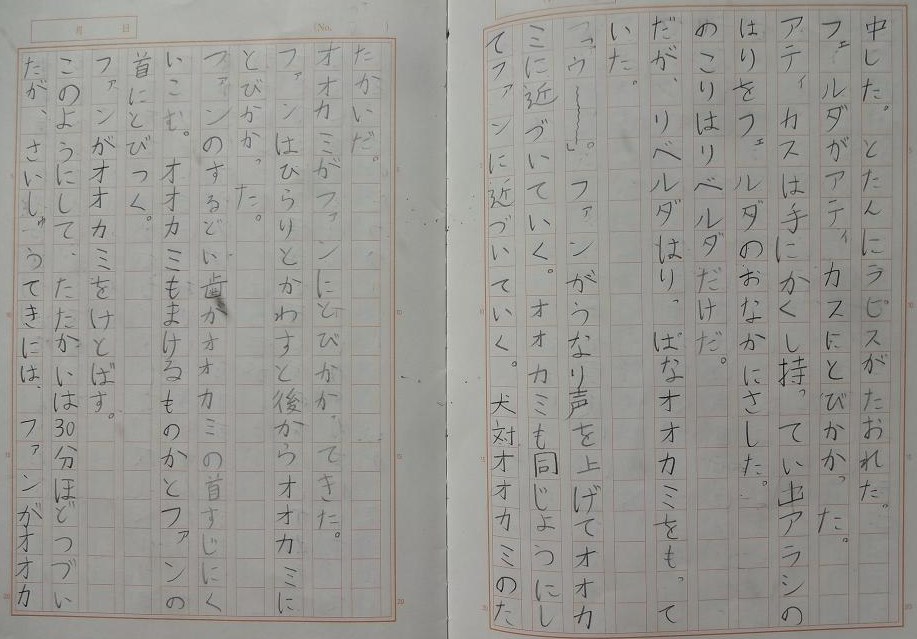 中した。とたんにラビスがたおれた。
フェルダがアティカスにとびかかった。
アティカスは手にかくし持っていたアラシの
はりをフェルダのおなかにさした。
のこりはリベルダだけだ。
だが、リベルダはりっぱなオオカミをもって
いた。
「ヴ〜〜〜〜」。ファンがうなり声を上げてオオカ
ミに近づいていく。オオカミも同じようにし
てファンに近づいていく。犬対オオカミのた
たかいだ。
オオカミがファンにとびかかってきた。
ファンはひらりとかわすと後からオオカミに
とびかかった。
ファンのするどい歯がオオカミの首すじにく
いこむ。オオカミもまけるものかとファンの
首にとびつく。
ファンがオオカミをけとばす。
このようにして、たたかいは30分ほどつづい
たが、さいしゅうてきには、ファンがオオカ
月 日
(No. )